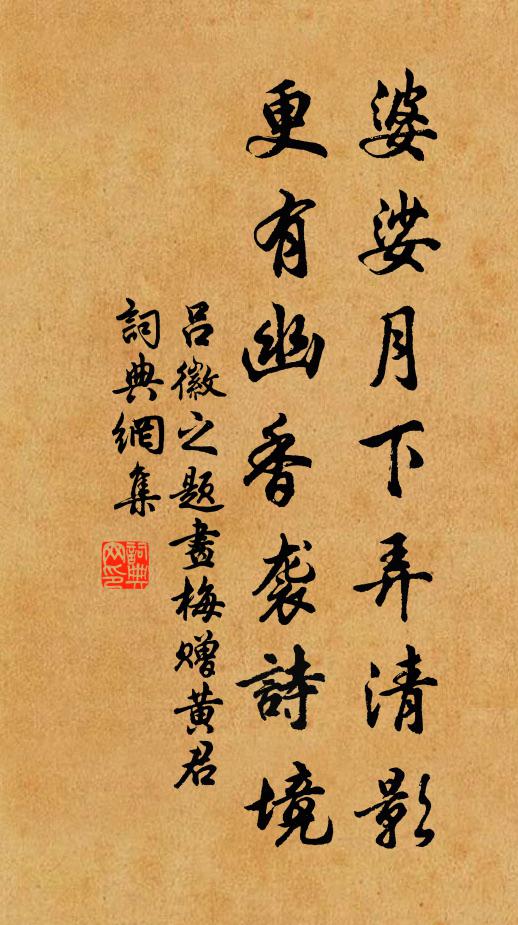 婆娑月下弄清影
更有幽香袭詩境
呂徽之题畫梅赠黄君
詞典網集
詞典
网印